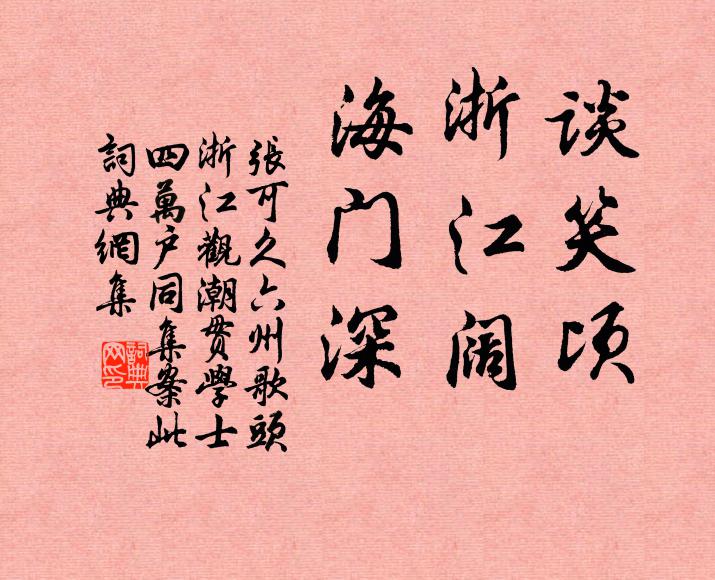 谈笑顷
浙江阔
海门深
張可久六州歌頭
浙江觀潮贯學士
四萬户同集案此
詞典網集
詞典网印